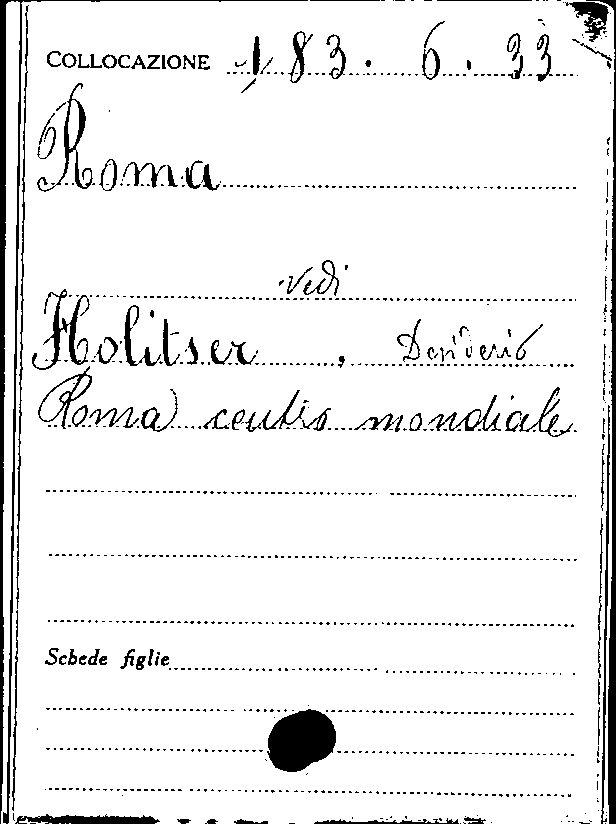 COLLOCAZIONE 183. 6. 33
Roma
Vedi
Holitser, Desiderio
Roma centro mondiale
Schede figlie